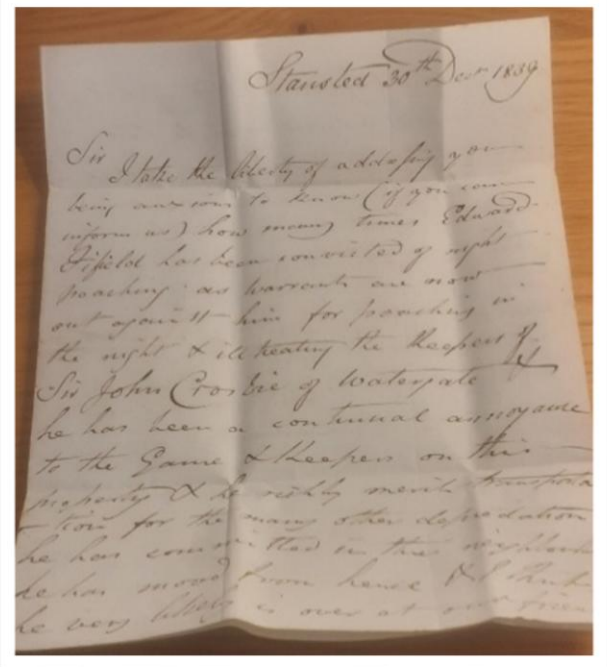 Stansted 30th Decr 1839
Sir
I take the liberty of addressing you
being anxious to know (if you can
inform us) how many times Edward
Fifield has been convicted of night
poaching as warrants are now
out against him for poaching in
the night & illtreating the Keepers of
Sir John Crosbie of Watergate
he has been a continual annoyance
to the Game & Keepers on this
property & he richly merits transporta
-tion for the many other depredations
he has committed in this neighborh
he has moved from hence & I think
he very likely is over at our